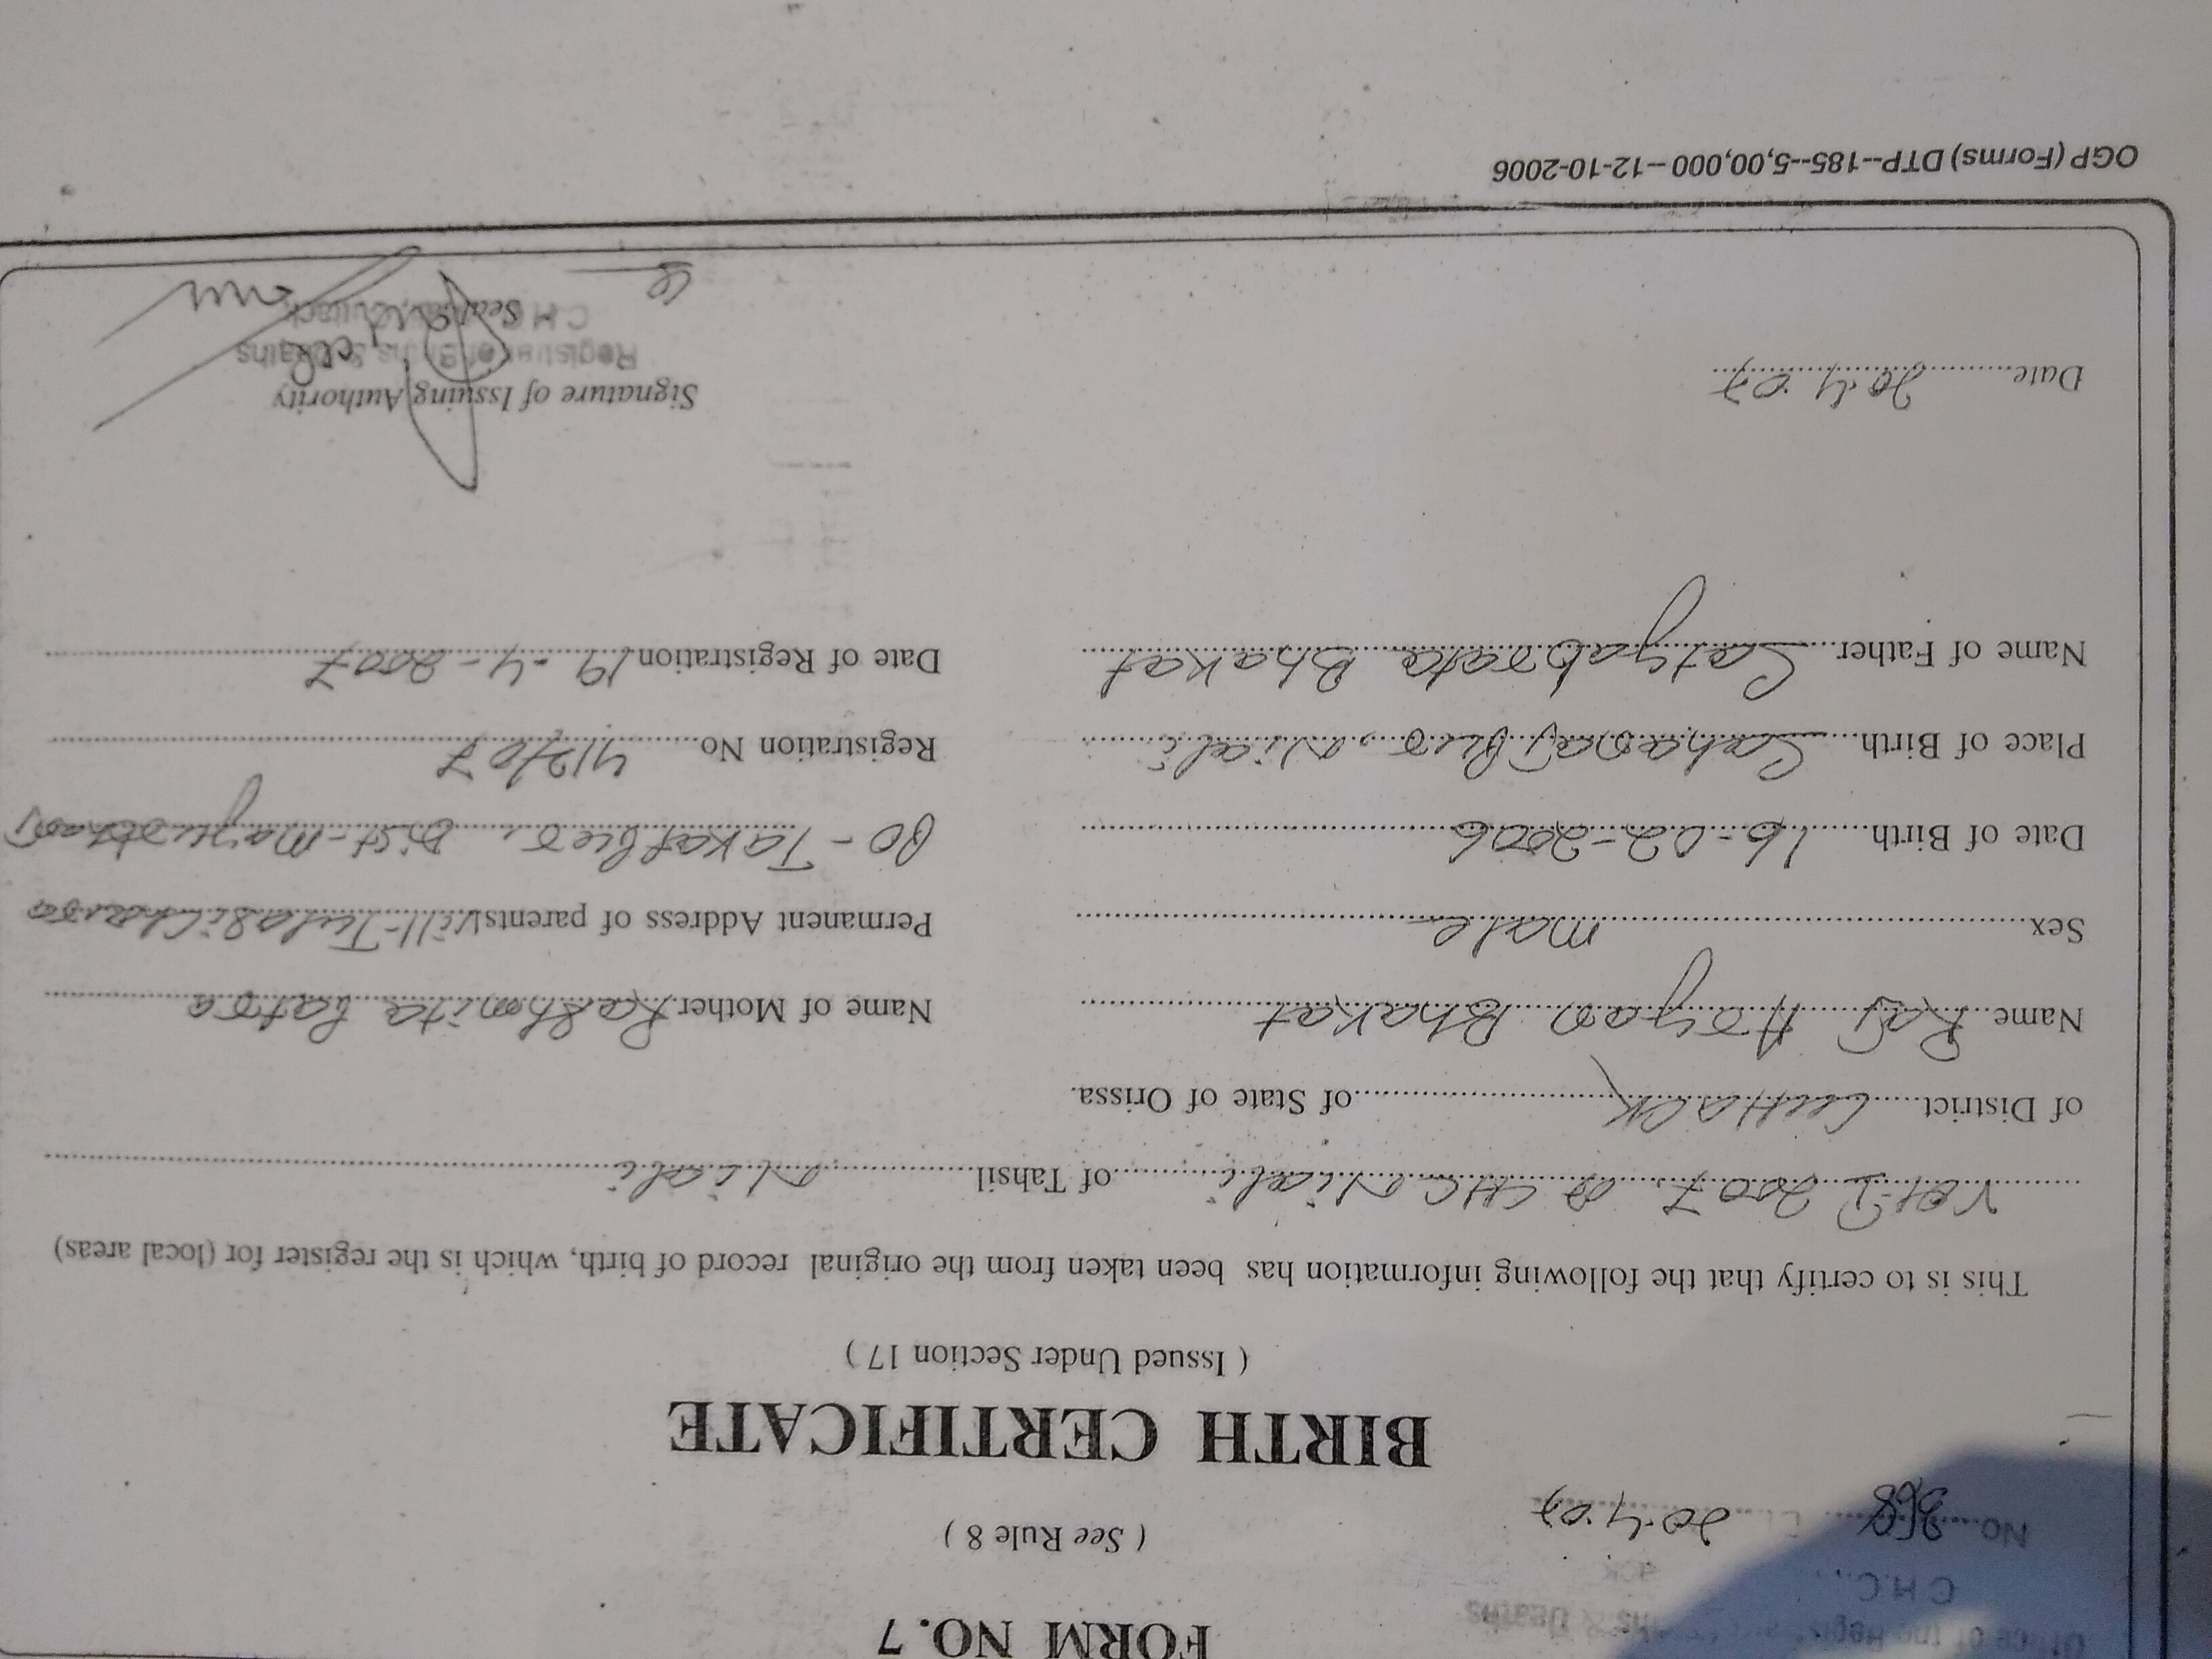 FORM NO. 7
Office of the Registrar Births & Deaths
C.H.C.
( See Rule 8 )
No. 368 Dt. 20.4.07
BIRTH CERTIFICATE
( Issued Under Section 17 )
This is to certify that the following information has been taken from the original record of birth, which is the register for (local areas)
Vol-I 2007 CHC Niali of Tahsil Niali
of District Cuttack of State of Orissa.
Name Raj Aryan Bhakat
Name of Mother Rashmita Patra
Sex male
Permanent Address of parents Vill-Tulasichaura
Date of Birth 16-02-2006
PO-Takatpur, Dist-Mayurbhanj
Place of Birth Saharajpur, Niali
Registration No 417/07
Name of Father Satyabrata Bhakat
Date of Registration 19-4-2007
Date 20.4.07
Signature of Issuing Authority
Registrar of Births & Deaths
Seal
C.H.C. Cuttack
OGP (Forms) DTP--185--5,00,000--12-10-2006